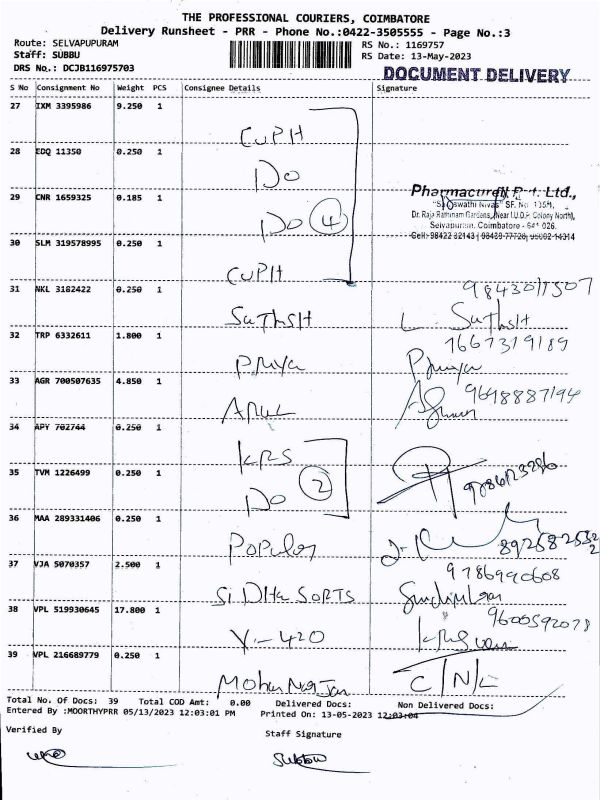 THE PROFESSIONAL COURIERS, COIMBATORE
Delivery Runsheet - PRR - Phone No.:0422-3505555 - Page No.:3
Route: SELVAPUPURAM
RS No.: 1169757
Staff: SUBBU
RS Date: 13-May-2023
DRS No.: DCJB116975703
DOCUMENT DELIVERY
S No Consignment No Weight PCS Consignee Details Signature
27 IXM 3395986 9.250 1
CUPH
28 EDQ 11350 0.250 1
Do
29 CNR 1659325 0.185 1
Do 4
Pharmacuren Pvt. Ltd.,
SF. No
Dr. Raja Rathinam Gardens, (Near I.U.D.P. Colony North),
Selvapuram, Coimbatore - 641 026.
30 SLM 319578995 0.250 1
CUPH
31 NKL 3182422 0.250 1
SaThSH
L. SaThSH
32 TRP 6332611 1.800 1
Priya
Priya
33 AGR 700507635 4.850 1
ARUL
9698887194
34 APY 702744 0.250 1
KRS
35 TVM 1226499 0.250 1
Do 2
36 MAA 289331406 0.250 1
Popular
37 VJA 5070357 2.500 1
9786990608
SIDHA SORTS
38 VPL 519930645 17.800 1
9600592078
Y-420
39 VPL 216689779 0.250 1
C/N/L
Total No. Of Docs: 39 Total COD Amt: 0.00 Delivered Docs: Non Delivered Docs:
Entered By :MOORTHYPRR 05/13/2023 12:03:01 PM Printed On: 13-05-2023 12:03:04
Verified By
Staff Signature